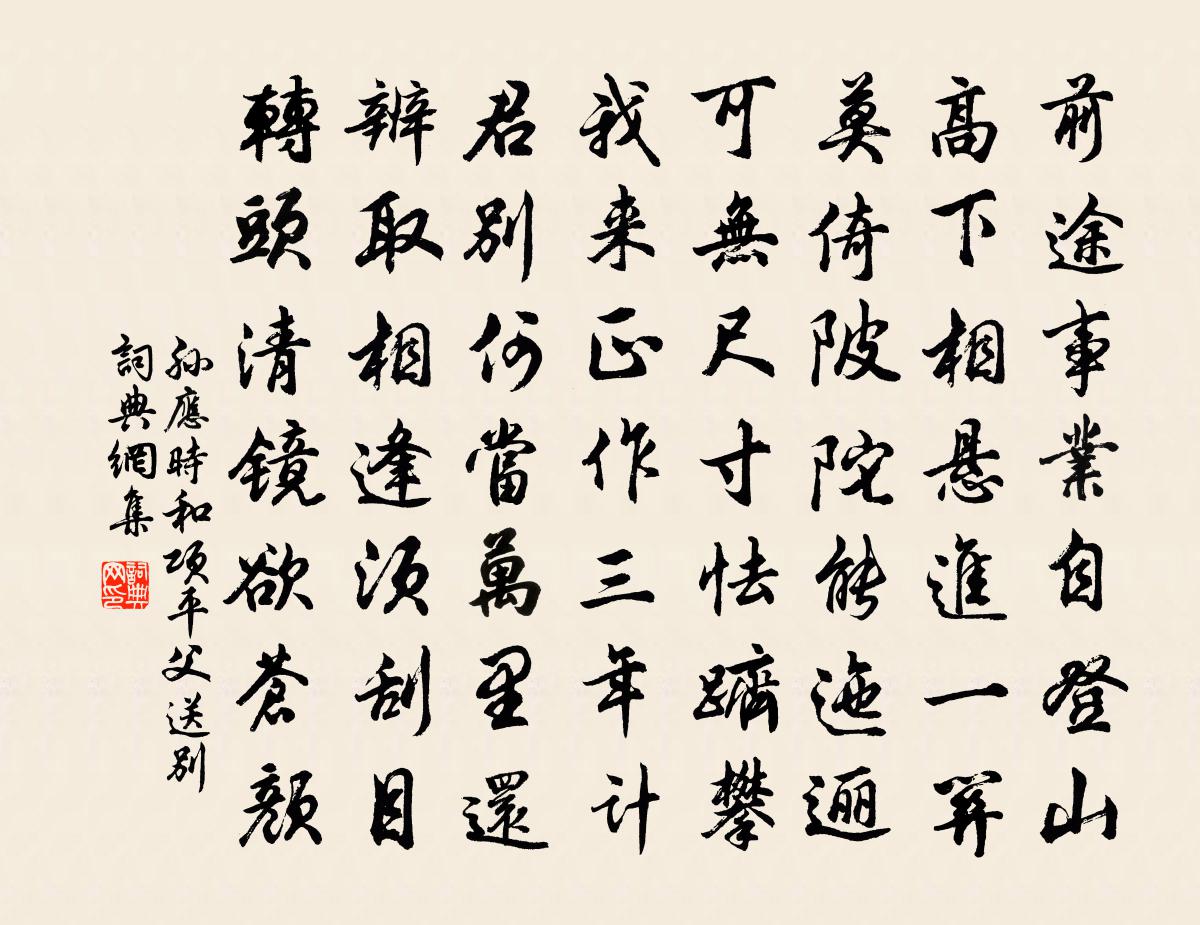 前途事業自登山
高下相懸進一關
莫倚陂陀能迤邐
可無尺寸怯躋攀
我来正作三年計
君別何當萬里還
辨取相逢須刮目
轉頭清鏡欲蒼顏
孫應時和項平父送別
詞典網集
詞典网印